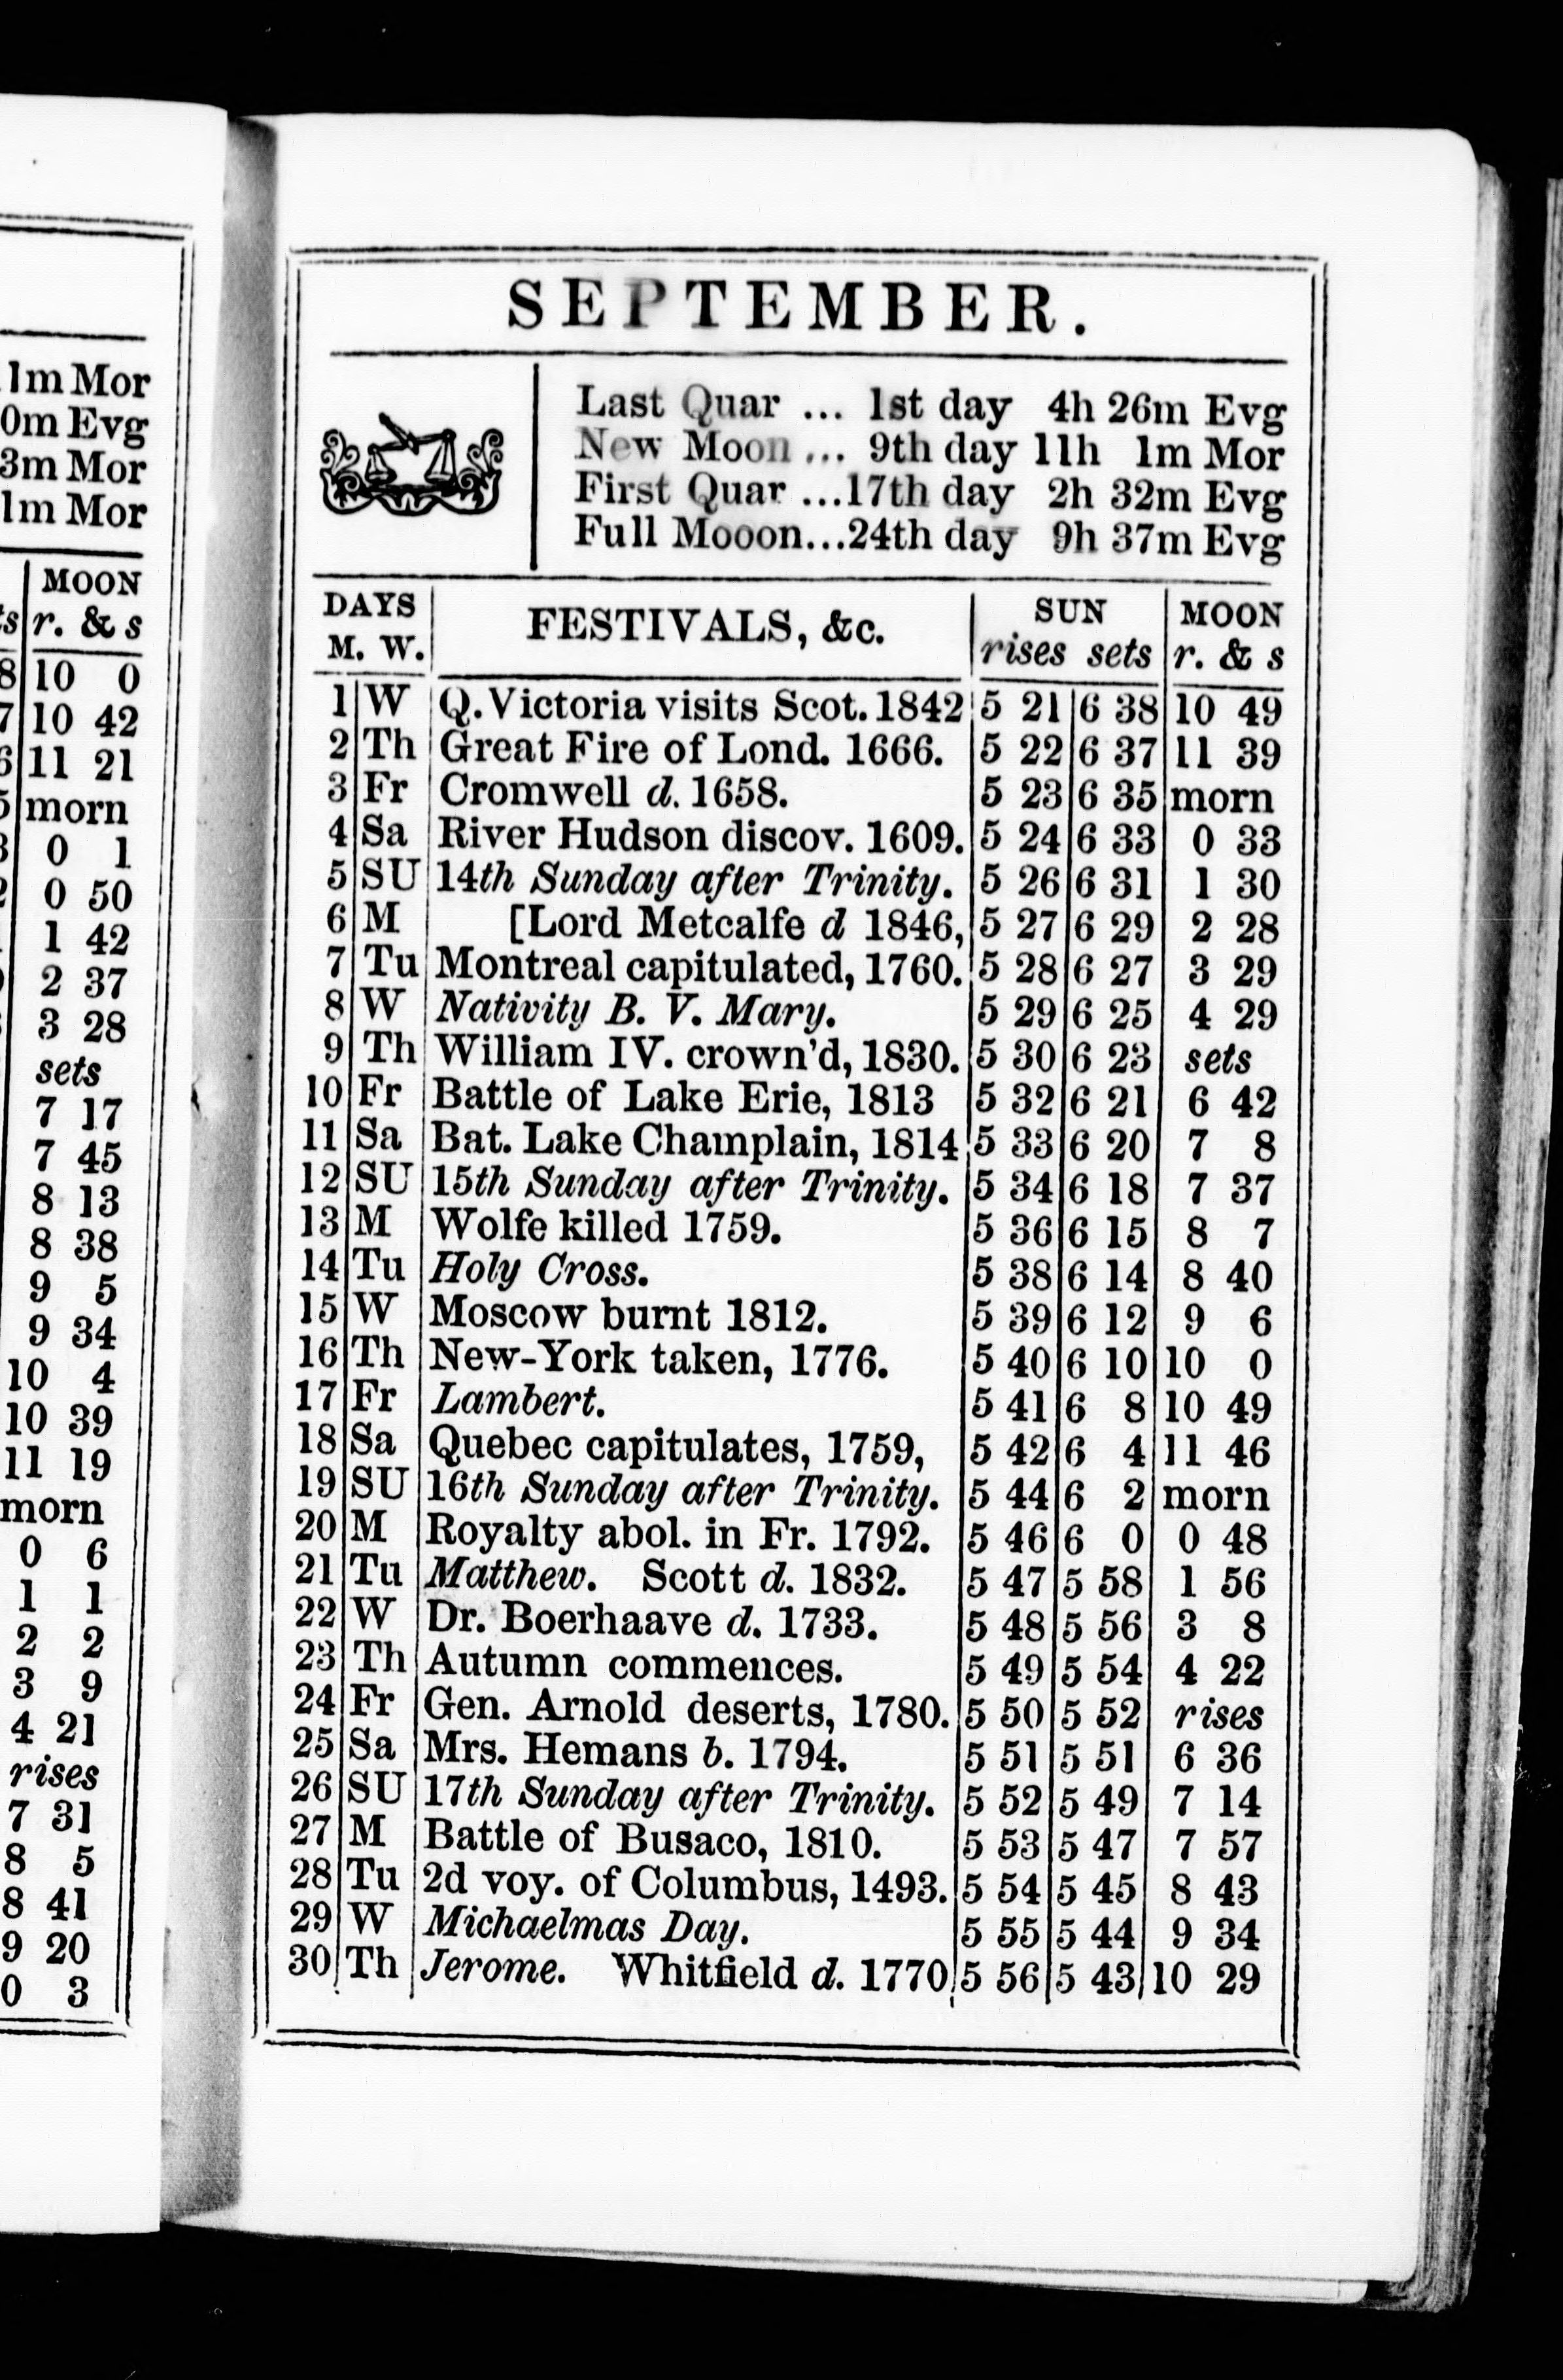 1m Mor
0m Evg
3m Mor
1m Mor
MOON
r. & s
8 10 0
7 10 42
6 11 21
5 morn
3 0 1
2 0 50
1 42
2 37
3 28
sets
7 17
7 45
8 13
8 38
9 5
9 34
10 4
10 39
11 19
morn
0 6
1 1
2 2
3 9
4 21
rises
7 31
8 5
8 41
9 20
0 3
SEPTEMBER.
Last Quar ... 1st day 4h 26m Evg
New Moon ... 9th day 11h 1m Mor
First Quar ...17th day 2h 32m Evg
Full Mooon...24th day 9h 37m Evg
DAYS FESTIVALS, &c. SUN MOON
M. W. rises sets r. & s
1 W Q. Victoria visits Scot. 1842 5 21 6 38 10 49
2 Th Great Fire of Lond. 1666. 5 22 6 37 11 39
3 Fr Cromwell d. 1658. 5 23 6 35 morn
4 Sa River Hudson discov. 1609. 5 24 6 33 0 33
5 SU 14th Sunday after Trinity. 5 26 6 31 1 30
6 M [Lord Metcalfe d 1846, 5 27 6 29 2 28
7 Tu Montreal capitulated, 1760. 5 28 6 27 3 29
8 W Nativity B. V. Mary. 5 29 6 25 4 29
9 Th William IV. crown'd, 1830. 5 30 6 23 sets
10 Fr Battle of Lake Erie, 1813 5 32 6 21 6 42
11 Sa Bat. Lake Champlain, 1814 5 33 6 20 7 8
12 SU 15th Sunday after Trinity. 5 34 6 18 7 37
13 M Wolfe killed 1759. 5 36 6 15 8 7
14 Tu Holy Cross. 5 38 6 14 8 40
15 W Moscow burnt 1812. 5 39 6 12 9 6
16 Th New-York taken, 1776. 5 40 6 10 10 0
17 Fr Lambert. 5 41 6 8 10 49
18 Sa Quebec capitulates, 1759, 5 42 6 4 11 46
19 SU 16th Sunday after Trinity. 5 44 6 2 morn
20 M Royalty abol. in Fr. 1792. 5 46 6 0 0 48
21 Tu Matthew. Scott d. 1832. 5 47 5 58 1 56
22 W Dr. Boerhaave d. 1733. 5 48 5 56 3 8
23 Th Autumn commences. 5 49 5 54 4 22
24 Fr Gen. Arnold deserts, 1780. 5 50 5 52 rises
25 Sa Mrs. Hemans b. 1794. 5 51 5 51 6 36
26 SU 17th Sunday after Trinity. 5 52 5 49 7 14
27 M Battle of Busaco, 1810. 5 53 5 47 7 57
28 Tu 2d voy. of Columbus, 1493. 5 54 5 45 8 43
29 W Michaelmas Day. 5 55 5 44 9 34
30 Th Jerome. Whitfield d. 1770 5 56 5 43 10 29